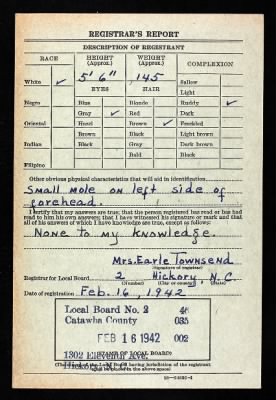 REGISTRAR'S REPORT
DESCRIPTION OF REGISTRANT
RACE HEIGHT (Approx.) WEIGHT (Approx.) COMPLEXION
White ✓ 5' 6" 145 Sallow
Light
EYES HAIR
Negro Blue Blonde Ruddy ✓
Gray ✓ Red Dark
Oriental Hazel Brown ✓ Freckled
Brown Black Light brown
Indian Black Gray Dark brown
Bald Black
Filipino
Other obvious physical characteristics that will aid in identification
Small mole on left side of
forehead.
I certify that my answers are true; that the person registered has read or has had
read to him his own answers; that I have witnessed his signature or mark and that
all of his answers of which I have knowledge are true, except as follows:
None to my knowledge.
Mrs. Earle Townsend
(Signature of registrar)
Registrar for Local Board 2 Hickory, N.C.
(Number) (City or county)
Date of registration Feb. 16, 1942
Local Board No. 2 46
Catawba County 035
FEB 16 1942 002
1302 Eleventh Ave.
(STAMP OF LOCAL BOARD)
(The stamp of the Local Board having jurisdiction of the registrant
shall be placed in the above space)